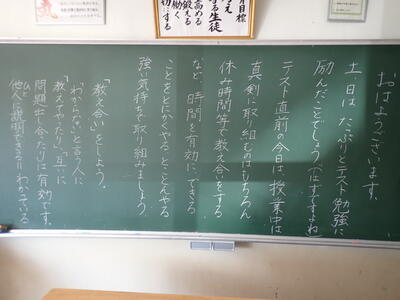 おはようございます。
土、日は、たっぷりとテスト勉強に
励んだことでしょう(はずですよね
テスト直前の今日は、授業中は
真剣に取り組むのはもちろん
休み時間等で教え合いをする
など、時間を有効にできる
ことをとにかくやる とことんやる
強い気持ちで取り組みましょう。
「教え合い」をしよう。
「わからない」と言う人に
「教えてやったり」、「互いに
問題出し合ったり」は有効です。
他人に説明できる=わかっている
ひと
月目標
考え
高める
鍛える
働く
する生徒